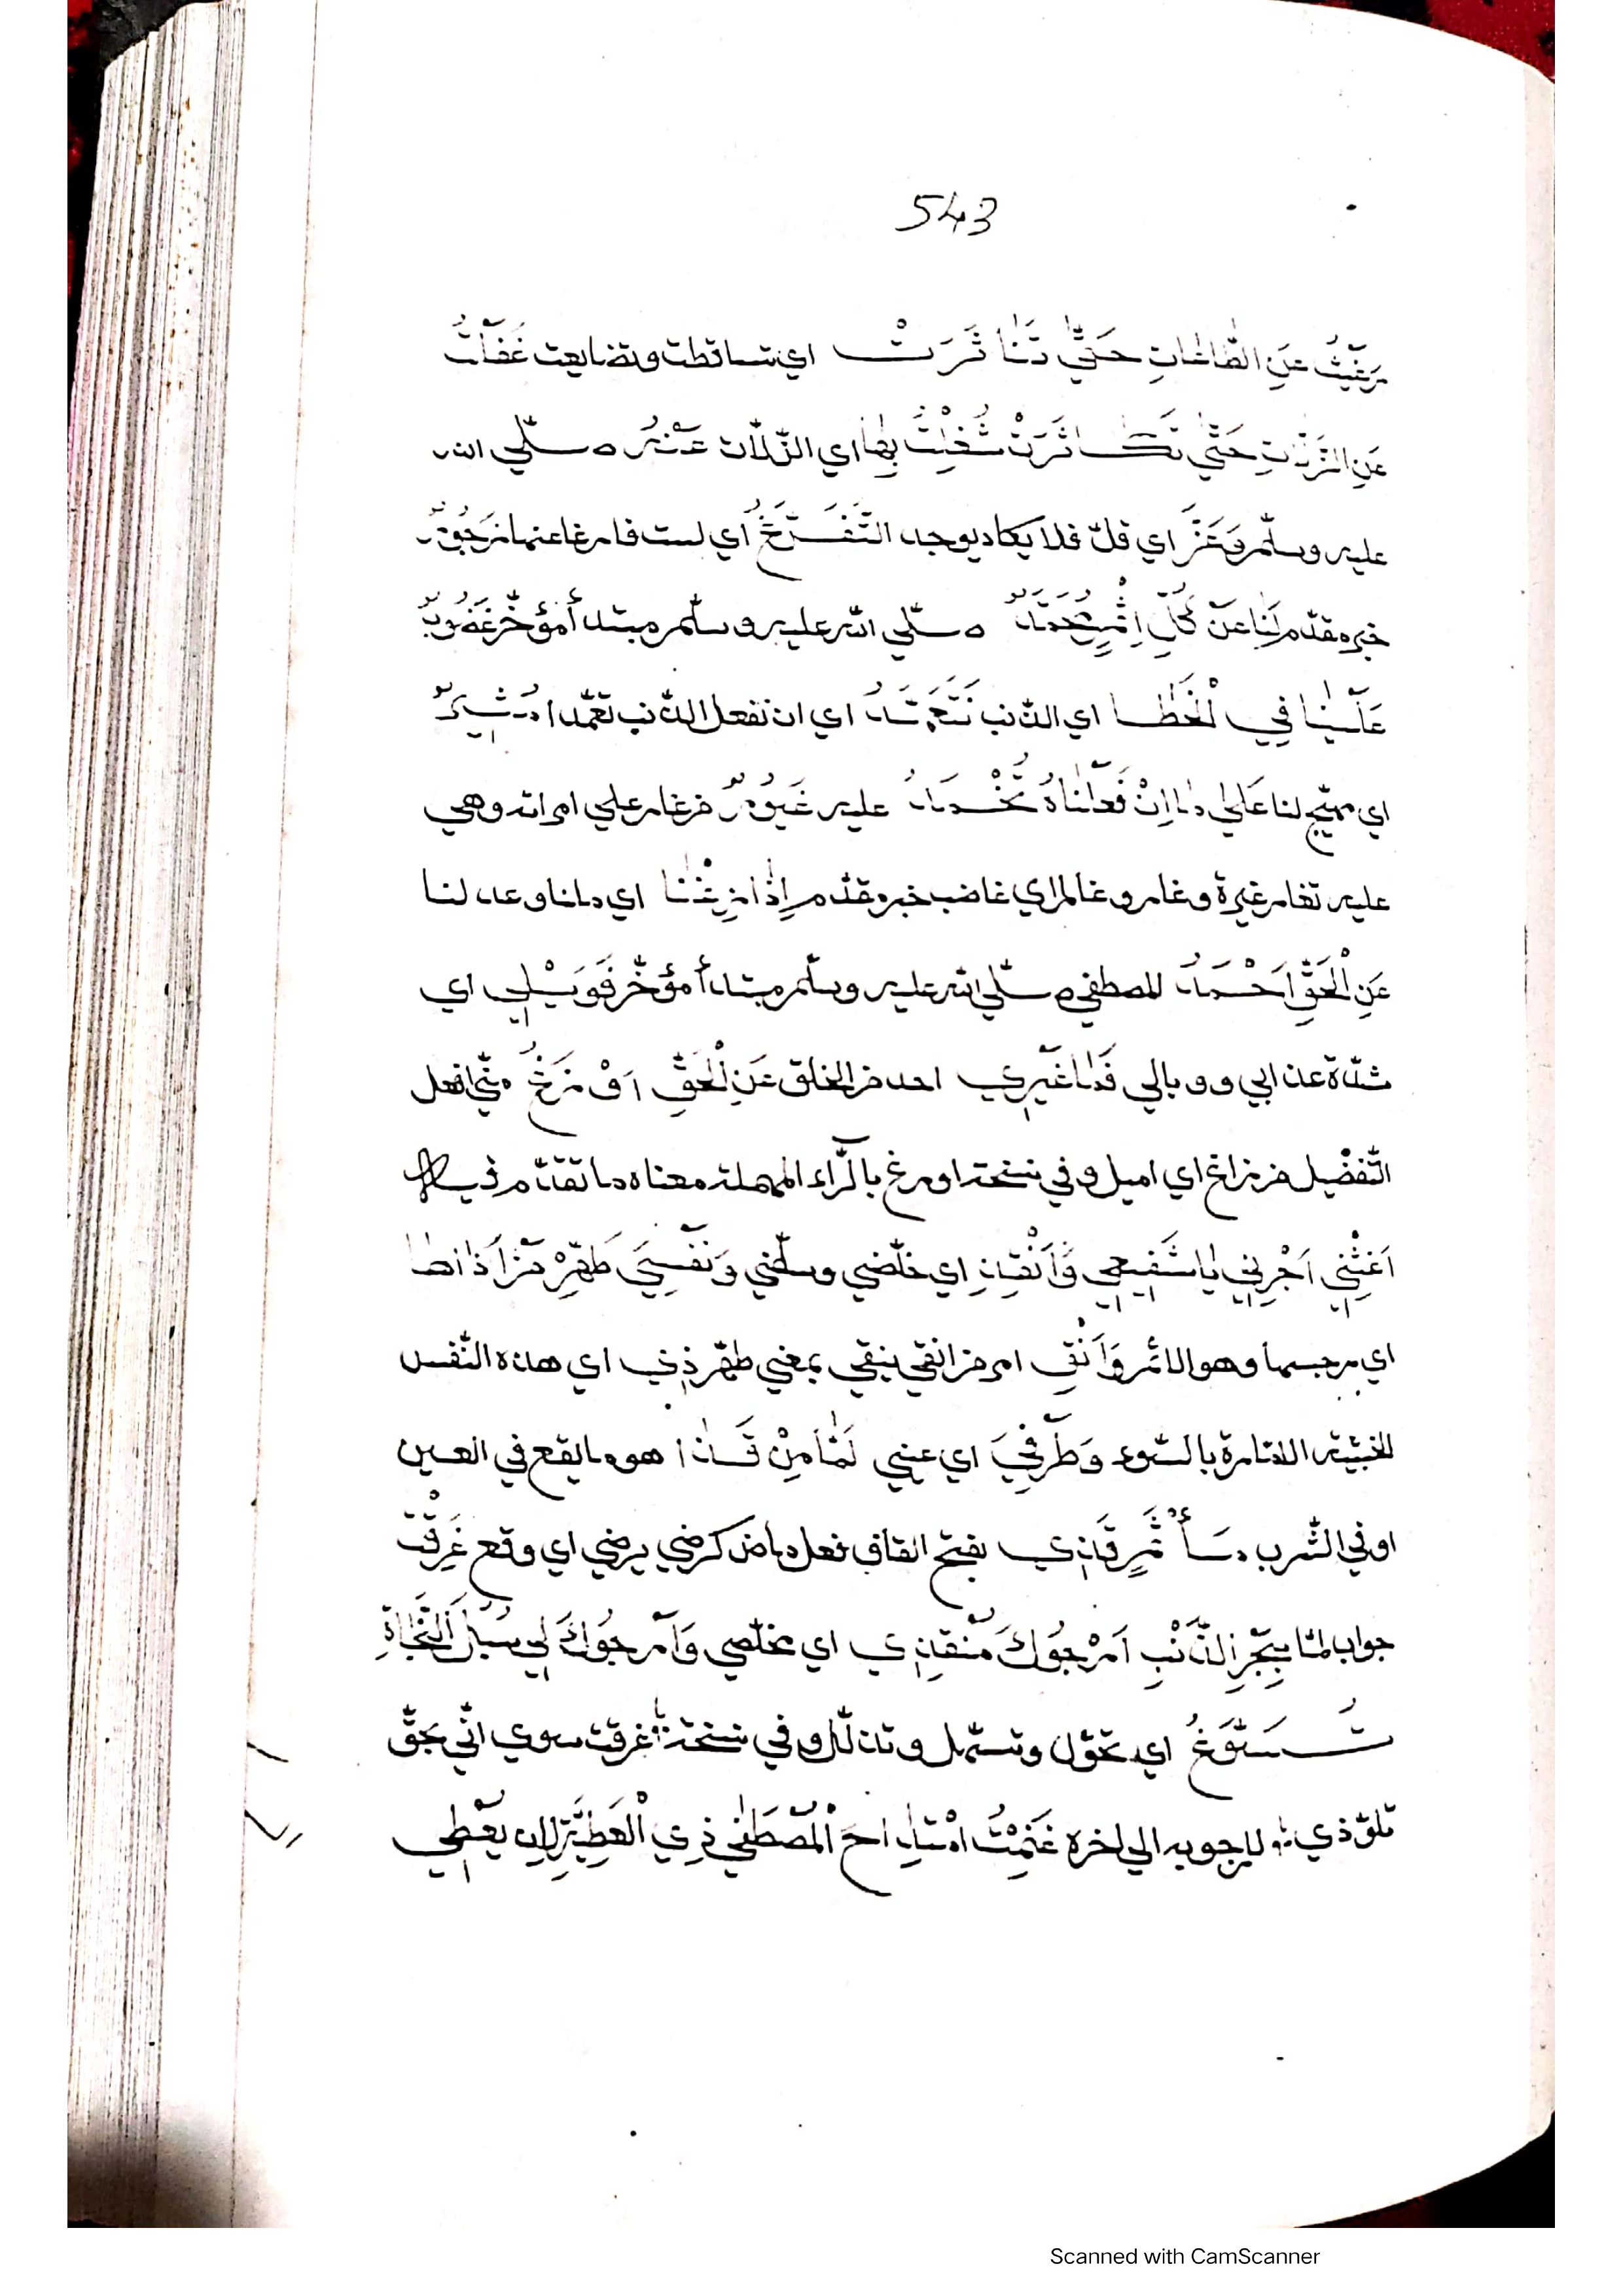 543
رَغِبْتُ عَنِ الطَّاعَاتِ حَتَّى تَنَاثَرَتْ اي تساقطت وتضايعت غَفَلْتُ
عَنِ الزَّلَّاتِ حَتَّى تَكَاثَرَتْ شُغِلْتُ بِهَا اي الزّلّات عَنْهُ صلّي الله
عليه وسلّم وَعَزَّ اي قلّ فلا يكاد يوجد التَّفَرُّغُ اي لست فارغا عنها زَجُورٌ
خبر مقدّم لَنَا عَنْ كُلِّ اِثْمٍ مُحَمَّدٌ صلّي الله عليه وسلّم مبتدأ مؤخّر غَضُوبٌ
عَلَيْنَا فِي الْخَطَا اي الذّنب نَتَعَمَّدُ اي ان نفعل الذّنب تعمّدا مُشِيرٌ
اي مهيّج لنا عَلَى مَا اِنْ فَعَلْنَاهُ نُحْمَدُ عليه غَيُورٌ من غار علي امراته وهي
عليه تغار غيرة وغار وغارا اي غاضب خبر مقدّم اِذَا زِغْنَا اي ملنا وعدلنا
عَنِ الْحَقِّ اَحْمَدُ المصطفي صلّي الله عليه وسلّم مبتدأ مؤخّر فَوَيْلِي اي
شدّة عذابي ووبالي فَمَا غَيْرِي احد من الخلق عَنِ الْحَقِّ اَزْيَغُ منّي افعل
التّفضيل من زاغ اي اميل وفي نسخة اورغ بالرّاء المهملة معناه ما تقدّم فيه
اَغِثْنِي اَجِرْنِي يَا شَفِيعِي وَاَنْقِذِ اي خلّصني وسلّمني وَنَفْسِيَ طَهِّرْ مِنْ اَذَاهَا
اي رجسها وهو الاثم وَاَنْقِ امر من انقي ينقي بمعني طهّر ذِي اي هذه النّفس
الخبيثة الامّارة بالسّوء وَطَرْفِيَ اي عيني لَمَّا مِنْ قَذَا هو ما يقع في العين
او في الشّرب قَذِي بفتح القاف فعل ماض كرضي يرضي اي وقع غَرِقْتُ
جواب لمّا بِبَحْرِ الذَّنْبِ اَرْجُوكَ مُنْقِذِي اي مخلّصي وَاَرْجُوكَ لِي سُبْلَ النَّجَاةِ
تُسَوِّغُ اي تحوّل وتسهّل وتذلّل وفي نسخة غرقت سوي انّي بحقّ
تلوّذي لارجو به الي اخره غَنِمْتُ امْتِدَاحَ الْمُصْطَفَى ذِي الْعَطِيَّةِ لان يعطي
Scanned with CamScanner